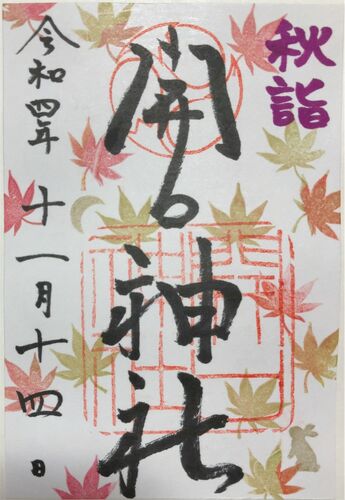 秋詣
開口神社
令和四年 十一月十四日